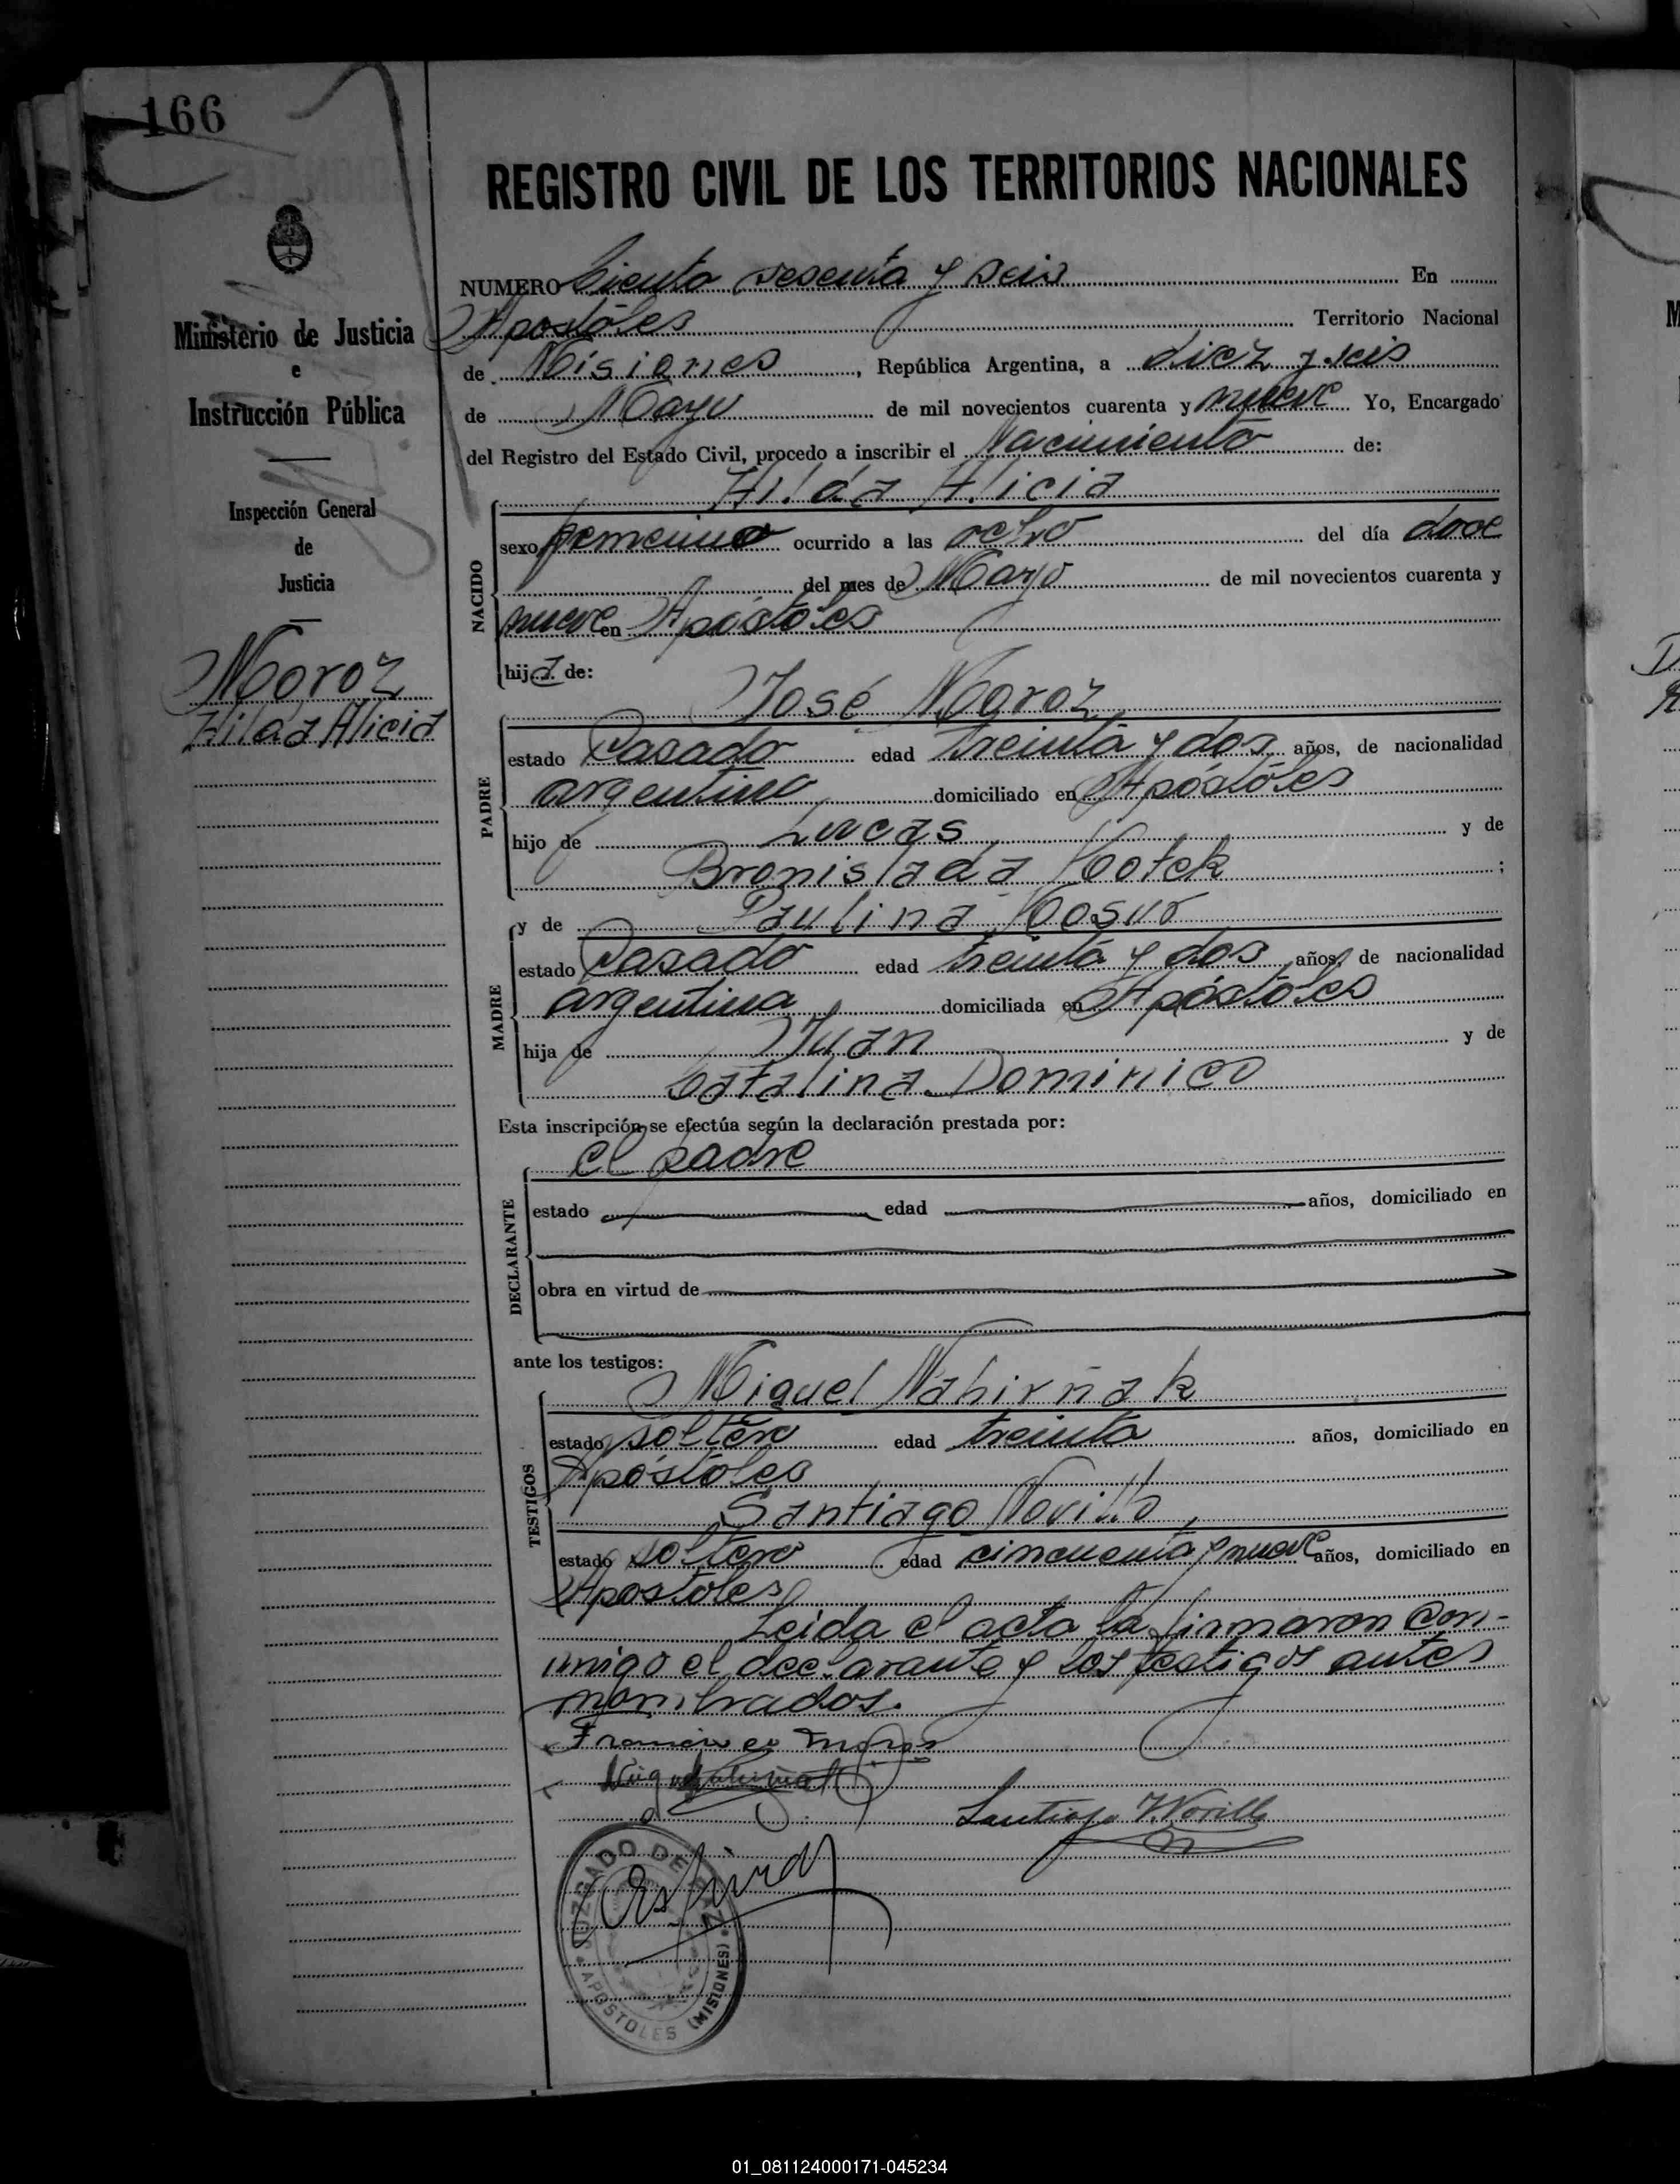 166
REGISTRO CIVIL DE LOS TERRITORIOS NACIONALES
Ministerio de Justicia
e
Instrucción Pública
Inspección General
de
Justicia
Moroz
Hilda Alicia
NUMERO Ciento sesenta y seis En
Apóstoles Territorio Nacional
de Misiones, República Argentina, a diez y seis
de Mayo de mil novecientos cuarenta y nueve Yo, Encargado
del Registro del Estado Civil, procedo a inscribir el Nacimiento de:
Hilda Alicia
NACIDO
sexo femenino ocurrido a las ocho del día doce
del mes de Mayo de mil novecientos cuarenta y
nueve en Apóstoles
hija de:
José Moroz
PADRE
estado Casado edad treinta y dos años, de nacionalidad
argentino domiciliado en Apóstoles
hijo de Lucas y de
Bronislada Hotek ;
y de Paulina
MADRE
estado Casado edad treinta y dos años, de nacionalidad
argentina domiciliada en Apóstoles
hija de Juan y de
Catalina Dominico
Esta inscripción se efectúa según la declaración prestada por:
el padre
DECLARANTE
estado edad años, domiciliado en
obra en virtud de
ante los testigos:
Miguel Nahirñak
TESTIGOS
estado soltero edad treinta años, domiciliado en
Apóstoles
Santiago Novillo
estado soltero edad cincuenta y nueve años, domiciliado en
Apóstoles
Leida el acta la firmaron con-
migo el declarante y los testigos antes
nombrados.
Santiago Novillo
JUZGADO DE PAZ
APOSTOLES (MISIONES)
01_081124000171-045234